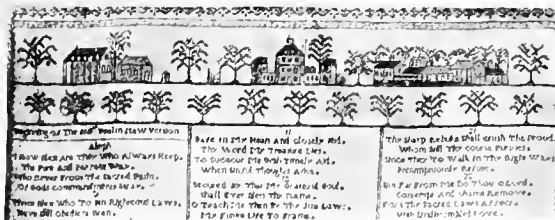 Beginning of The 119 Psalm in New Version
Aleph
How Blest Are They Who Always Keep
The Pure And Perfect Way
Who Never From The Sacred Paths
Of Gods Commandments Stray
Thrice Blest Who To His Righteous Laws
Have Still Obedient Been
11
Safe In My Heart And Closely Hid
Thy Word My Treasure Lies
To Succour Me With Timely Aid
When Sinful Thoughts Arise
Secured By That My Grateful Soul
Shall Ever Bless Thy Name
O Teach Me Then By Thy Just Laws
My Future Life To Frame
Thy Sharp Rebuke Shall Crush The Proud
Whom Still Thy Curse Pursues
Since They To Walk In Thy Right Ways
Presumptuously Refuse
But Far From Me Do Thou O Lord
Contempt And Shame Remove
For I Thy Sacred Laws Affect
With Undissembled Love